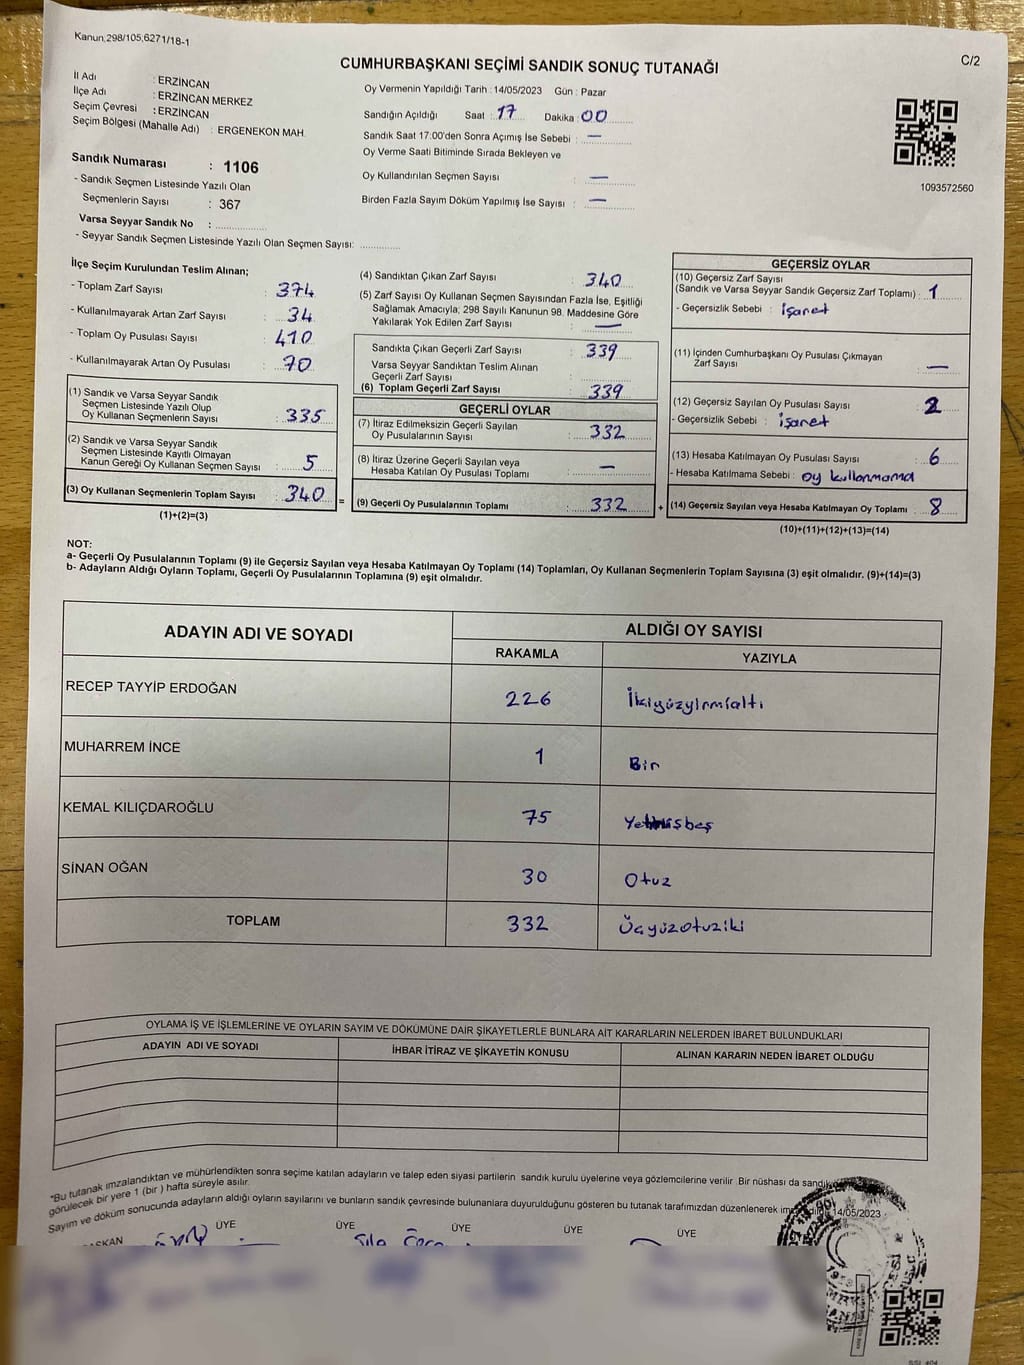 Kanun,298/105,6271/18-1
C/2
CUMHURBAŞKANI SEÇİMİ SANDIK SONUÇ TUTANAĞI
İl Adı : ERZİNCAN
İlçe Adı : ERZİNCAN MERKEZ
Seçim Çevresi : ERZİNCAN
Seçim Bölgesi (Mahalle Adı) : ERGENEKON MAH.
Sandık Numarası : 1106
- Sandık Seçmen Listesinde Yazılı Olan
Seçmenlerin Sayısı : 367
Varsa Seyyar Sandık No :
- Seyyar Sandık Seçmen Listesinde Yazılı Olan Seçmen Sayısı:
Oy Vermenin Yapıldığı Tarih : 14/05/2023 Gün : Pazar
Sandığın Açıldığı Saat : 17 Dakika : 00
Sandık Saat 17:00'den Sonra Açımış İse Sebebi : —
Oy Verme Saati Bitiminde Sırada Bekleyen ve
Oy Kullandırılan Seçmen Sayısı : —
Birden Fazla Sayım Döküm Yapılmış İse Sayısı : —
1093572560
İlçe Seçim Kurulundan Teslim Alınan;
- Toplam Zarf Sayısı : 374
- Kullanılmayarak Artan Zarf Sayısı : 34
- Toplam Oy Pusulası Sayısı : 410
- Kullanılmayarak Artan Oy Pusulası : 70
(1) Sandık ve Varsa Seyyar Sandık
Seçmen Listesinde Yazılı Olup
Oy Kullanan Seçmenlerin Sayısı : 335
(2) Sandık ve Varsa Seyyar Sandık
Seçmen Listesinde Kayıtlı Olmayan
Kanun Gereği Oy Kullanan Seçmen Sayısı : 5
(3) Oy Kullanan Seçmenlerin Toplam Sayısı : 340 =
(1)+(2)=(3)
(4) Sandıktan Çıkan Zarf Sayısı : 340
(5) Zarf Sayısı Oy Kullanan Seçmen Sayısından Fazla İse, Eşitliği
Sağlamak Amacıyla; 298 Sayılı Kanunun 98. Maddesine Göre
Yakılarak Yok Edilen Zarf Sayısı : —
Sandıkta Çıkan Geçerli Zarf Sayısı : 339
Varsa Seyyar Sandıktan Teslim Alınan
Geçerli Zarf Sayısı :
(6) Toplam Geçerli Zarf Sayısı : 339
GEÇERLİ OYLAR
(7) İtiraz Edilmeksizin Geçerli Sayılan
Oy Pusulalarının Sayısı : 332
(8) İtiraz Üzerine Geçerli Sayılan veya
Hesaba Katılan Oy Pusulası Toplamı : —
(9) Geçerli Oy Pusulalarının Toplamı : 332 +
GEÇERSİZ OYLAR
(10) Geçersiz Zarf Sayısı
(Sandık ve Varsa Seyyar Sandık Geçersiz Zarf Toplamı) : 1
- Geçersizlik Sebebi : işaret
(11) İçinden Cumhurbaşkanı Oy Pusulası Çıkmayan
Zarf Sayısı : —
(12) Geçersiz Sayılan Oy Pusulası Sayısı : 2
- Geçersizlik Sebebi : işaret
(13) Hesaba Katılmayan Oy Pusulası Sayısı : 6
- Hesaba Katılmama Sebebi : oy kullanmama
(14) Geçersiz Sayılan veya Hesaba Katılmayan Oy Toplamı : 8
(10)+(11)+(12)+(13)=(14)
NOT:
a- Geçerli Oy Pusulalarının Toplamı (9) ile Geçersiz Sayılan veya Hesaba Katılmayan Oy Toplamı (14) Toplamları, Oy Kullanan Seçmenlerin Toplam Sayısına (3) eşit olmalıdır. (9)+(14)=(3)
b- Adayların Aldığı Oyların Toplamı, Geçerli Oy Pusulalarının Toplamına (9) eşit olmalıdır.
ADAYIN ADI VE SOYADI
ALDIĞI OY SAYISI
RAKAMLA YAZIYLA
RECEP TAYYİP ERDOĞAN 226 İkiyüzyirmialtı
MUHARREM İNCE 1 Bir
KEMAL KILIÇDAROĞLU 75 Yetmişbeş
SİNAN OĞAN 30 Otuz
TOPLAM 332 Üçyüzotuziki
OYLAMA İŞ VE İŞLEMLERİNE VE OYLARIN SAYIM VE DÖKÜMÜNE DAİR ŞİKAYETLERLE BUNLARA AİT KARARLARIN NELERDEN İBARET BULUNDUKLARI
ADAYIN ADI VE SOYADI İHBAR İTİRAZ VE ŞİKAYETİN KONUSU ALINAN KARARIN NEDEN İBARET OLDUĞU
"Bu tutanak imzalandıktan ve mühürlendikten sonra seçime katılan adayların ve talep eden siyasi partilerin sandık kurulu üyelerine veya gözlemcilerine verilir .Bir nüshası da
görülecek bir yere 1 (bir ) hafta süreyle asılır.
Sayım ve döküm sonucunda adayların aldığı oyların sayılarını ve bunların sandık çevresinde bulunanlara duyurulduğunu gösteren bu tutanak tarafımızdan düzenlenerek 14/05/2023
ÜYE ÜYE ÜYE ÜYE ÜYE